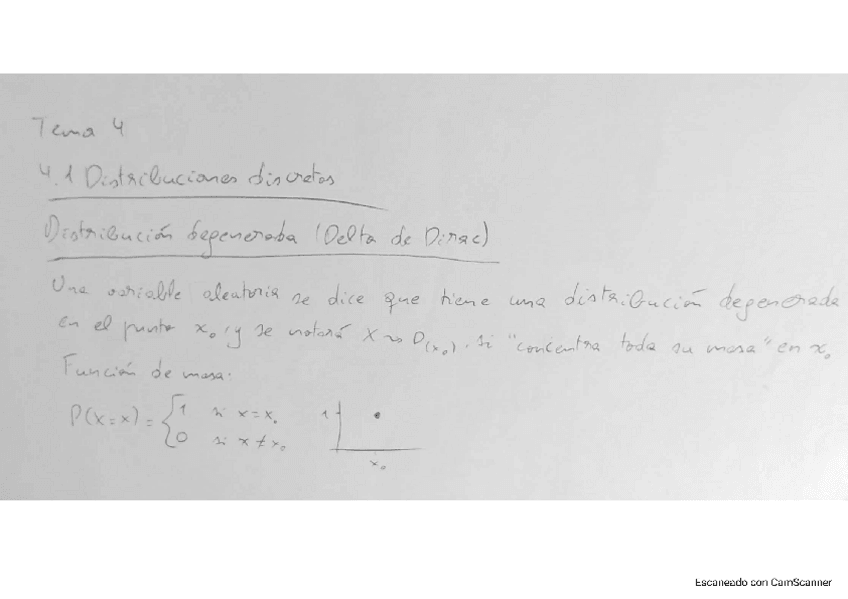 Tema 4
4.1 Distribuciones discretas
Distribución Degenerada (Delta de Dirac)
Una variable aleatoria se dice que tiene una distribución degenerada
en el punto x₀, y se notará X ~ D(x₀), si "concentra toda su masa" en x₀
Función de masa.
P(X=x) = { 1 si x=x₀
0 si x≠x₀
1
x₀
Escaneado con CamScanner